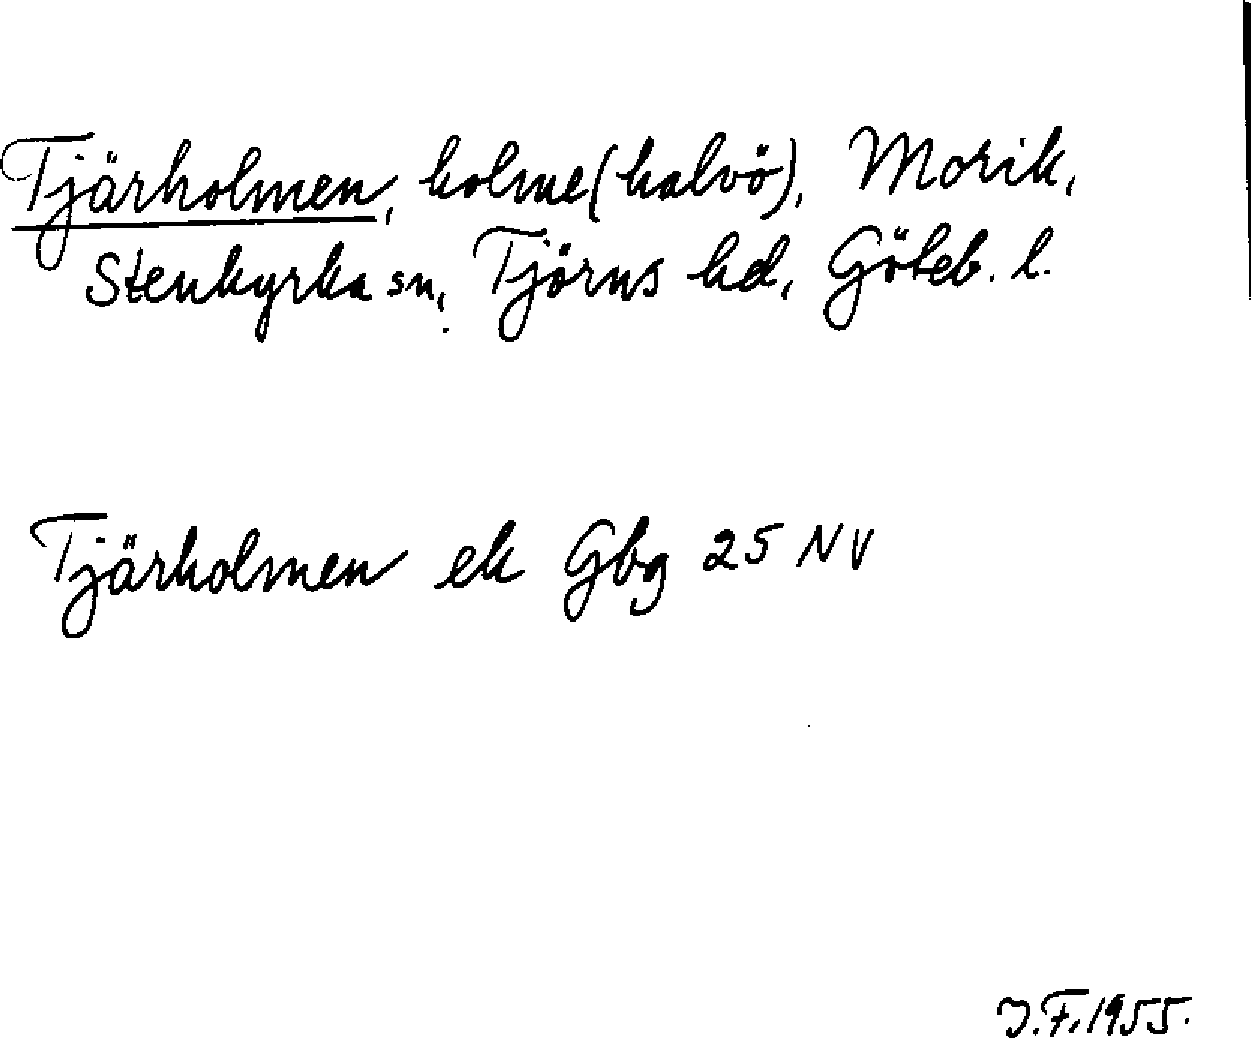 Tjärholmen, holme (halvö), Morik,
Stenkyrka sn, Tjörns hd, Göteb. l.
Tjärholmen ek Gbg 25 NV
J.F. 1955.